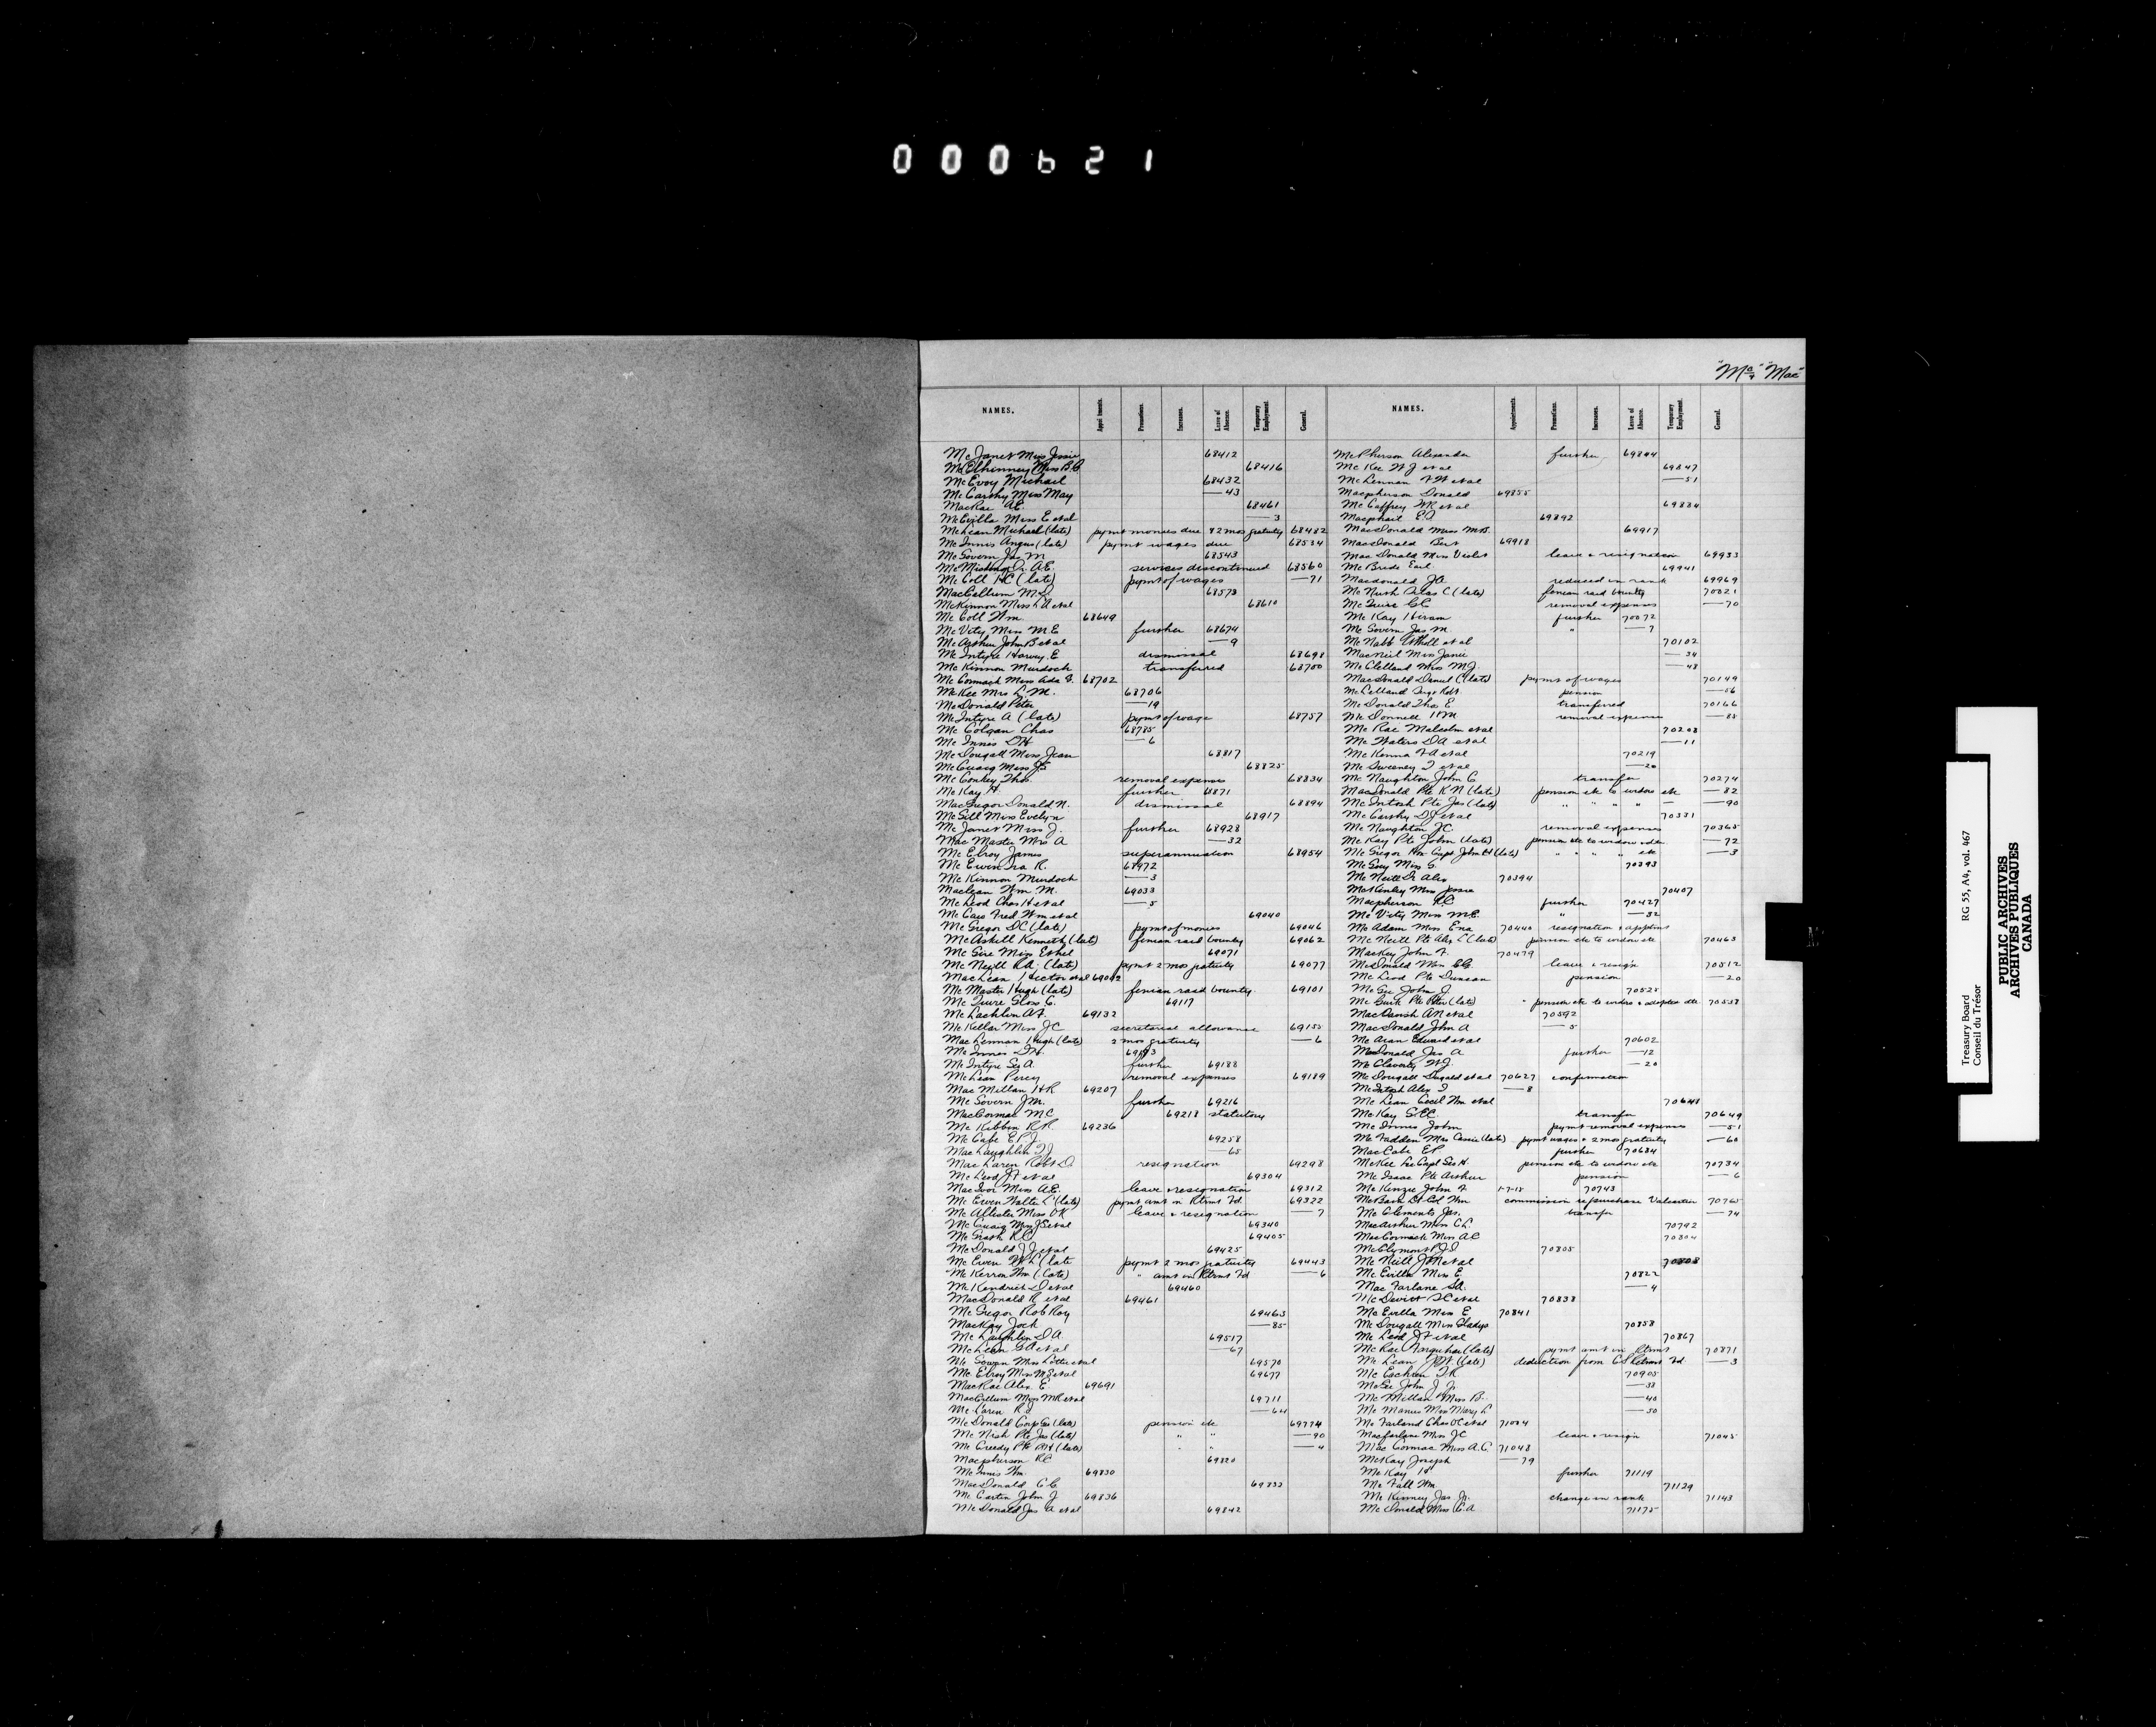 000621
"Mc" & "Mac"
NAMES. Appointments. Promotions. Increases. Leave of Absence. Temporary Employment. General.
McJanet Miss Jessie 68412
McElhinney Miss B.B 68416
McEvoy Michael 68432
McCarthy Miss May —43
MacRae A.E. 68461
McEvilla Miss E et al —3
McLean Michael (late) pymt monies due & 2 mos gratuity 68482
McInnis Angus (late) pymt wages due 68534
McGovern Jas M 68543
Dr. A.E. services discontinued 68560
McColl H.C (late) pymt of wages —71
MacCallum M 68573
McKinnon Miss L A et al 68610
McColl Wm 68649
McVity Miss M.E further 68674
McArthur John B et al —9
McIntyre Harvey E dismissal 68698
McKinnon Murdoch transferred 68700
McCormack Miss Ada G. 68702
McKee Mrs L.M. 68706
McDonald Peter —19
McIntyre A (late) pymt of wage 68757
McColgan Chas 68785
McInnes D H —6
McDougall Miss Jean 68817
McCuaig Miss J.E 68825
McConkey Thos. removal expenses 68834
McKay H. further 68871
MacGregor Donald N. dismissal 68894
McGill Miss Evelyn 68917
McJanet Miss J. further 68928
MacMaster Mrs A —32
McElroy James superannuation 68954
McEwen Ira R. 68972
McKinnon Murdoch —3
Maclean Wm M. 69033
McLeod Chas H et al —5
McCaw Fred Wm et al 69040
McGregor D C (late) pymt of monies 69046
McAskill Kenneth (late) fenian raid bounty 69062
McGee Miss Ethel 69071
McNeill R.A. (late) pymt 2 mos gratuity 69077
MacLean Hector et al 69092
McMaster Hugh (late) fenian raid bounty. 69101
McGuire G. 69117
McLachlin A F. 69132
McKellar Miss J C secretarial allowance 69155
MacLennan Hugh (late) 2 mos gratuity —6
McInnes D H. 69183
McIntyre Geo A. further 69188
McLean Percy removal expenses 69189
MacMillan H R 69207
McGovern J M. further 69216
MacCormac M C 69218 statutory
McKibbin R R. 69236
McCabe E P J. 69258
MacLaughlin T J —65
MacLaren Robt D. resignation 69298
McLeod J F et al 69304
MacIvor Miss A.E. leave & resignation 69312
McEwen Walter L (late) pymt amt in Rtrmt Fd 69322
McAllister Miss O K leave & resignation —7
McCuaig Miss J E et al 69340
McGrath R C 69405
McDonald J J et al 69425
McEwen W L (late pymt 2 mos gratuity 69443
McKerron Wm (late) " amt in Rtrmt Fd —6
McKendrick D et al 69460
MacDonald R et al 69461
McGregor Rob Roy 69463
MacKay Jock —85
McLaughlin D A. 69517
McLean G A et al —67
McGowan Miss Lottie et al 69570
McElroy Miss M E et al 69677
MacRae Alex. E 69691
MacCallum Miss M R et al 69711
McLaren R J —64
McDonald Corp Geo (late) pension etc 69774
McNish Pte Jas (late) " " —90
McCreedy Pte (late) " " —4
Macpherson R C 69820
McInnis Wm. 69830
MacDonald C C. 69832
McCartin John J 69836
McDonald Jas A et al 69842
NAMES. Appointments. Promotions. Increases. Leave of Absence. Temporary Employment. General.
McPherson Alexander further 69844
McKee W J et al 69847
McLennan F W et al —51
Macpherson Donald 69855
McCaffrey W R et al 69884
Macphail E. 69892
MacDonald Miss M B. 69917
MacDonald Bert 69918
MacDonald Miss Violet leave & resignation 69933
McBride Earl 69941
Macdonald J A. reduced in rank 69969
Silas C (late) fenian raid bounty 70021
McGuire C C removal expenses —70
McKay Hiram further 70072
McGovern Jas M. " —7
McNabb et al 70102
MacNeil Miss Janie —34
McClelland Miss M J. —48
MacDonald Daniel (late) pymt of wages 70149
McLelland Robt. pension —56
McDonald Thos E transferred 70166
McDonnell H M removal expenses —85
McRae Malcolm et al 70208
McWaters D A et al —11
McKenna F A et al 70219
McSweeney T et al —20
McNaughton John C transfer 70274
MacDonald Pte K N (late) pension etc to widow etc —82
McIntosh Pte Jas (late) " " " " —90
McCarthy D J et al 70331
McNaughton J C. removal expenses 70365
McKay Pte John (late) pension etc to widow —72
McGregor Capt John (late) " " " " etc —3
Miss G. 70393
McNeill Dr Alex 70394
McKinley Miss Jessie 70407
Macpherson R C further 70427
McVity Miss M E. " —32
McAdam Miss Ena 70440 resignation & apptmt
McNeill Pte Alex C (late) pension etc to widow etc 70463
Mackey John F. 70479
McDonald Miss C G. leave & resign 70512
McLeod Pte Duncan pension —20
McGee John J. 70525
McGurk Pte Peter (late) " pension etc to widow & adopted dtr. 70553
MacTavish A N et al 70592
MacDonald John A —5
Edward et al 70602
McDonald Jas A further —12
McClaverty W J. —20
McDougall Dugald et al 70627 confirmation
McIntosh Alex J —8
McLean Cecil Wm et al 70648
McKay G E C. transfer 70649
McInnis John pymt removal expenses —51
McFadden Mrs Cassie (late) pymt wages & 2 mos gratuity —60
MacCabe E P further 70684
McKee Capt Geo H. pension etc to widow etc 70734
McIsaac Pte Arthur pension —6
McKenzie John F 1-7-18 70743
Lt Col Wm commission repurchase Valcartier 70765
McClements Jas. transfer —74
MacArthur Miss C L. 70792
MacCormack Miss A C 70804
McClymont P J D 70805
McNeill J M et al 70808
McEvilla Miss E. 70822
MacFarlane G A. —4
McDevitt et al 70838
McEvilla Miss E 70841
McDougall Miss Gladys 70858
McLeod J F et al 70867
McRae Farquhar (late) pymt amt in Rtrmt 70871
McLean J W (late) deduction from CS Retrmt Fd —3
McEachren T R 70905
McGee John J Jr. —38
McMillan Miss B. —40
McManus Miss Mary L —50
McFarland Chas O C et al 71004
Macfarlane Miss J C leave & resign 71045
MacCormac Miss A.C. 71048
McKay Joseph —79
McKay H further 71119
McFall Wm 71129
McKinney Jas Jr. change in rank 71143
McDonald Miss C. A 71175
Treasury Board RG 55, A4, vol. 467
Conseil du Trésor
PUBLIC ARCHIVES
ARCHIVES PUBLIQUES
CANADA